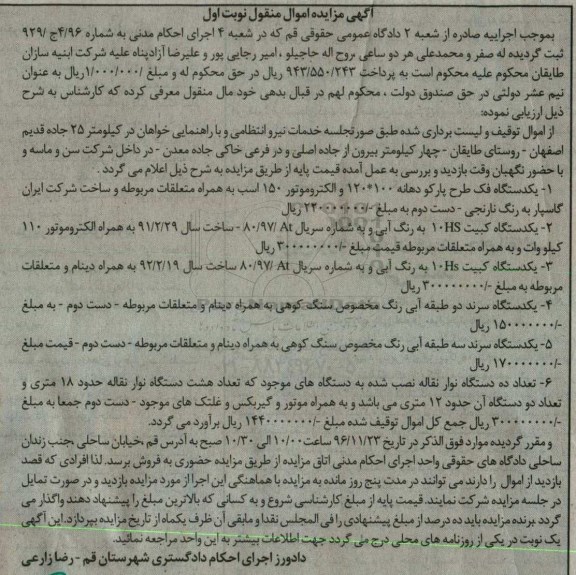 آگهی مزایده اموال منقول نوبت اول
بموجب اجراییه صادره از شعبه ۲ دادگاه عمومی حقوقی قم که در شعبه ۴ اجرای احکام مدنی به شماره ۴/۹۶ج/۹۲۹
ثبت گردیده له صفر و محمدعلی هر دو ساعی ،روح اله حاجیلو ، امیر رجایی پور و علیرضا آزادپناه علیه شرکت ابنیه سازان
طایقان محکوم علیه محکوم است به پرداخت ۹۴۳/۵۵۰/۲۴۳ ریال در حق محکوم له و مبلغ /۱/۰۰۰/۰۰۰ریال به عنوان
نیم عشر دولتی در حق صندوق دولت ، محکوم لهم در قبال بدهی خود مال منقول معرفی کرده که کارشناس به شرح
ذیل ارزیابی نموده:
از اموال توقیف و لیست برداری شده طبق صورتجلسه خدمات نیرو انتظامی و با راهنمایی خواهان در کیلومتر ۲۵ جاده قدیم
اصفهان - روستای طایقان - چهار کیلومتر بیرون از جاده اصلی و در فرعی خاکی جاده معدن - در داخل شرکت سن و ماسه و
با حضور نگهبان وقت بازدید و بررسی به عمل آمده قیمت پایه از طریق مزایده به شرح ذیل اعلام می گردد .
۱- یکدستگاه فک طرح پارکو دهانه ۱۰۰*۱۲۰ و الکتروموتور ۱۵۰ اسب به همراه متعلقات مربوطه و ساخت شرکت ایران
گاسپار به رنگ نارنجی - دست دوم به مبلغ -/۲۲۰۰۰۰۰۰۰ ریال
۲- یکدستگاه کبیت 10HS به رنگ آبی و به شماره سریال 80/97/ At - ساخت سال ۹۱/۲/۲۹ به همراه الکتروموتور ۱۱۰
کیلو وات و به همراه متعلقات مربوطه قیمت مبلغ -/۳۰۰۰۰۰۰۰۰ ریال
۳- یکدستگاه کبیت 10Hs به رنگ آبی و به شماره سریال 80/97/ At ساخت سال ۹۲/۲/۱۹ به همراه دینام و متعلقات
مربوطه به مبلغ -/۳۰۰۰۰۰۰۰۰ ریال
۴- یکدستگاه سرند دو طبقه آبی رنگ مخصوص سنگ کوهی به همراه دینام و متعلقات مربوطه - دست دوم - به مبلغ
-/۱۵۰۰۰۰۰۰۰ ریال
۵- یکدستگاه سرند سه طبقه آبی رنگ مخصوص سنگ کوهی به همراه دینام و متعلقات مربوطه - دست دوم - قیمت مبلغ
-/۱۷۰۰۰۰۰۰۰ ریال
۶- تعداد ده دستگاه نوار نقاله نصب شده به دستگاه های موجود که تعداد هشت دستگاه نوار نقاله حدود ۱۸ متری و
تعداد دو دستگاه آن حدود ۱۲ متری می باشد و به همراه موتور و گیربکس و غلتک های موجود - دست دوم جمعا به مبلغ
-/۳۰۰۰۰۰۰۰۰ ریال جمع کل اموال توقیف شده مبلغ -/۱۴۴۰۰۰۰۰۰۰ ریال برآورد می گردد.
و مقرر گردیده موارد فوق الذکر در تاریخ ۹۶/۱۱/۲۳ ساعت ۱۰/۰۰ الی ۱۰/۳۰ صبح به آدرس قم ،خیابان ساحلی ،جنب زندان
ساحلی دادگاه های حقوقی واحد اجرای احکام مدنی اتاق مزایده از طریق مزایده حضوری به فروش برسد. لذا افرادی که قصد
بازدید از اموال را دارند می توانند در مدت پنج روز مانده به مزایده با هماهنگی این اجرا از مورد مزایده بازدید و در صورت تمایل
در جلسه مزایده شرکت نمایند. قیمت پایه از مبلغ کارشناسی شروع و به کسانی که بالاترین مبلغ را پیشنهاد دهند واگذار می
گردد برنده مزایده باید ده درصد از مبلغ پیشنهادی را فی المجلس نقدا و مابقی آن ظرف یکماه از تاریخ مزایده بپردازد. این آگهی
یک نوبت در یکی از روزنامه های محلی درج می گردد جهت اطلاعات بیشتر به این واحد مراجعه نمائید.
دادورز اجرای احکام دادگستری شهرستان قم - رضا زارعی